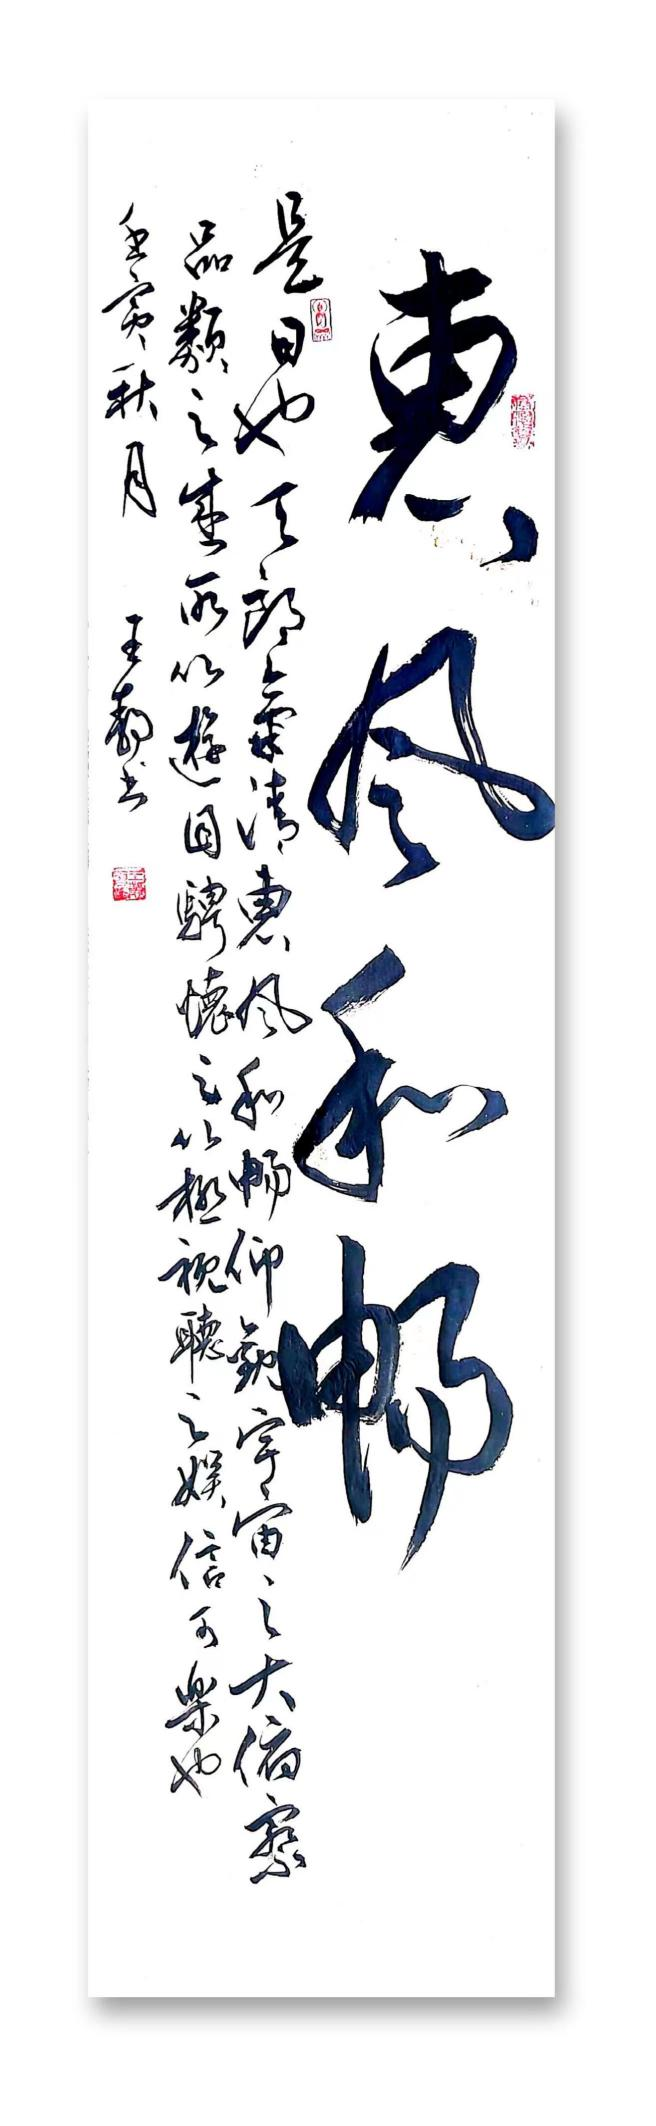 惠风和畅
是日也天朗氣清惠风和畅仰觀宇宙之大俯察
品類之盛所以遊目騁懷足以極視聽之娱信可樂也
壬寅秋月 王静书